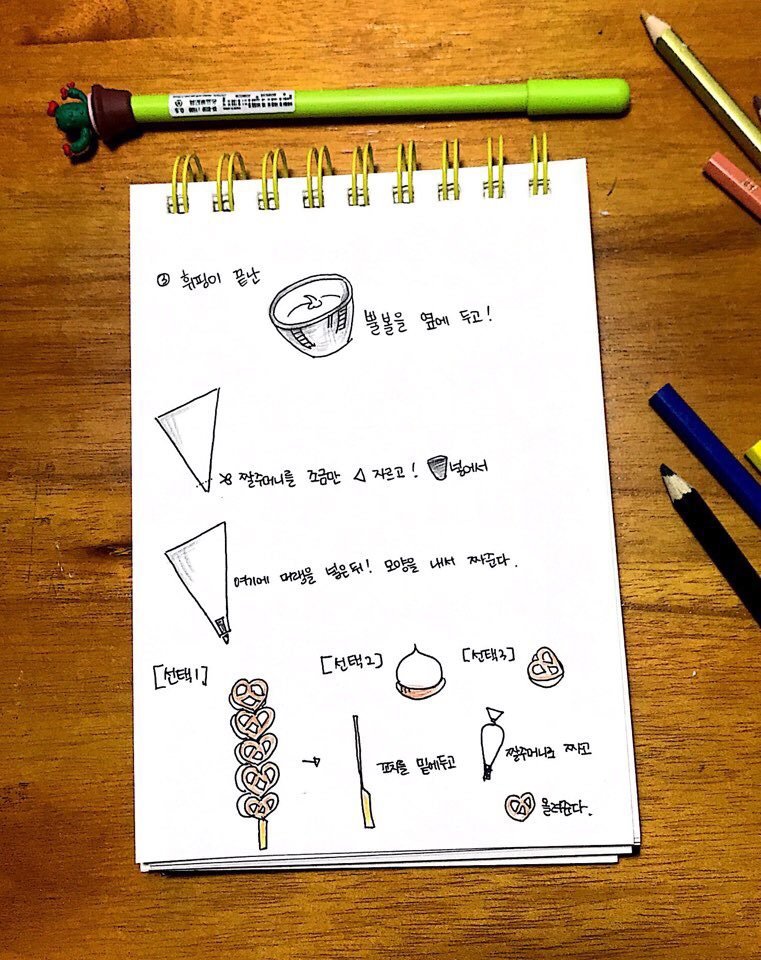 ③ 휘핑이 끝난
뿔볼을 옆에 두고!
짤주머니를 조금만 자르고! 넣어서
여기에 머랭을 넣은뒤! 모양을 내서 짜준다.
[선택1]
[선택2]
[선택3]
꼬지를 밑에두고
짤주머니로 짜고
올려준다.